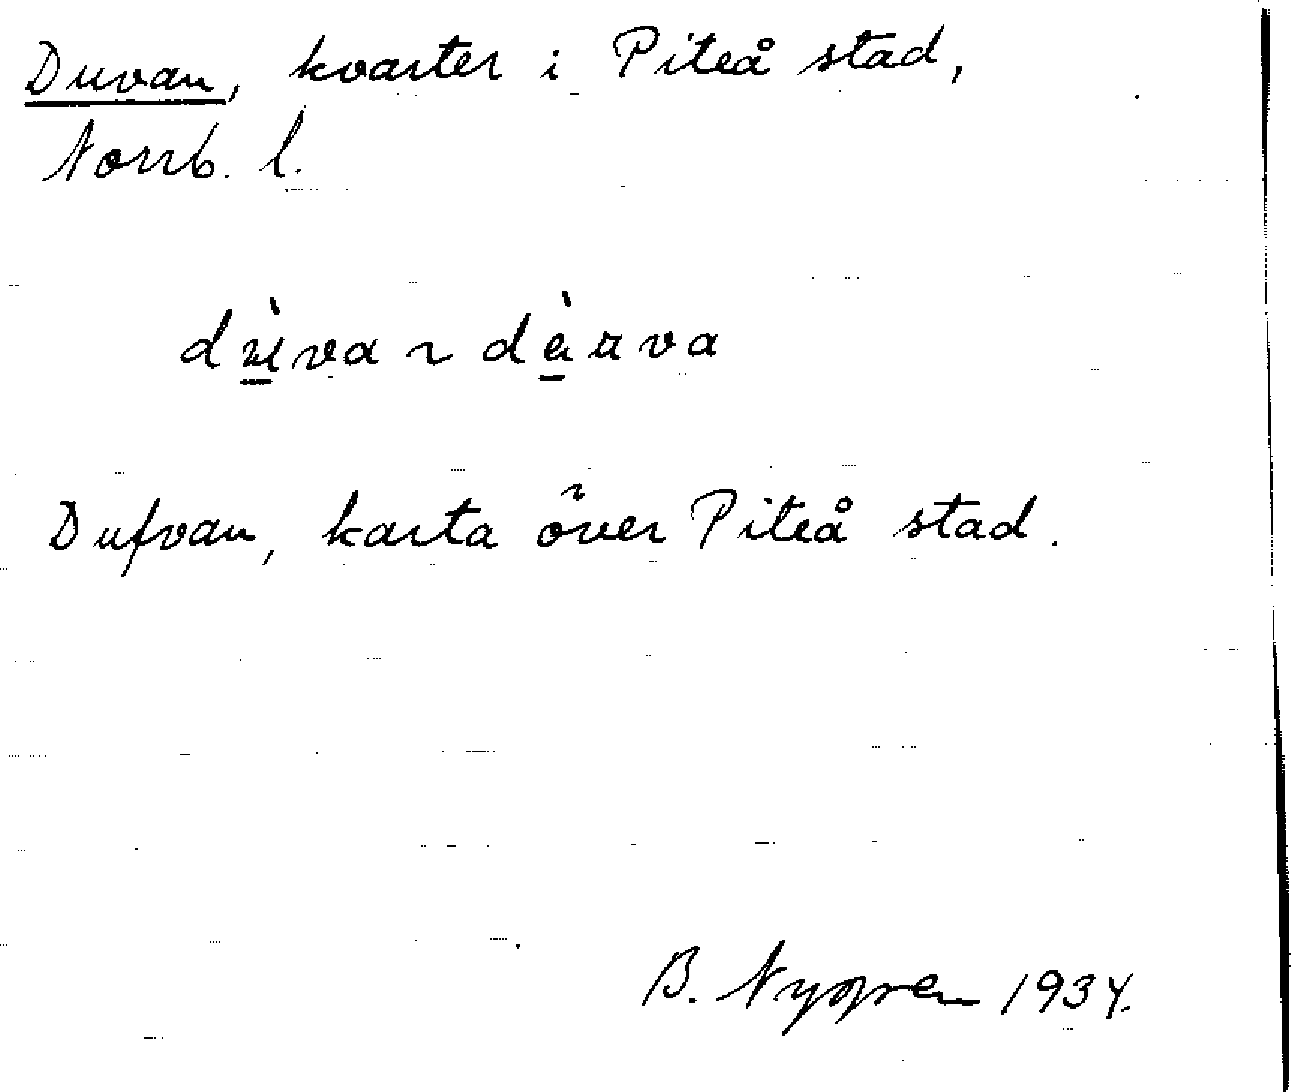 Duvan, kvarter i Piteå stad,
Norrb. l.
Dufvan, karta över Piteå stad.
B. Nygren 1934.